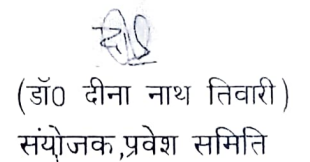 (डॉ0 दीना नाथ तिवारी)
संयोजक,प्रवेश समिति